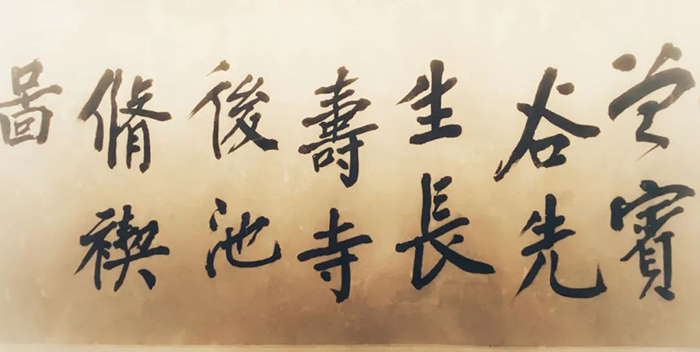 曾賓
谷先
生長
壽寺
後池
脩禊
啚